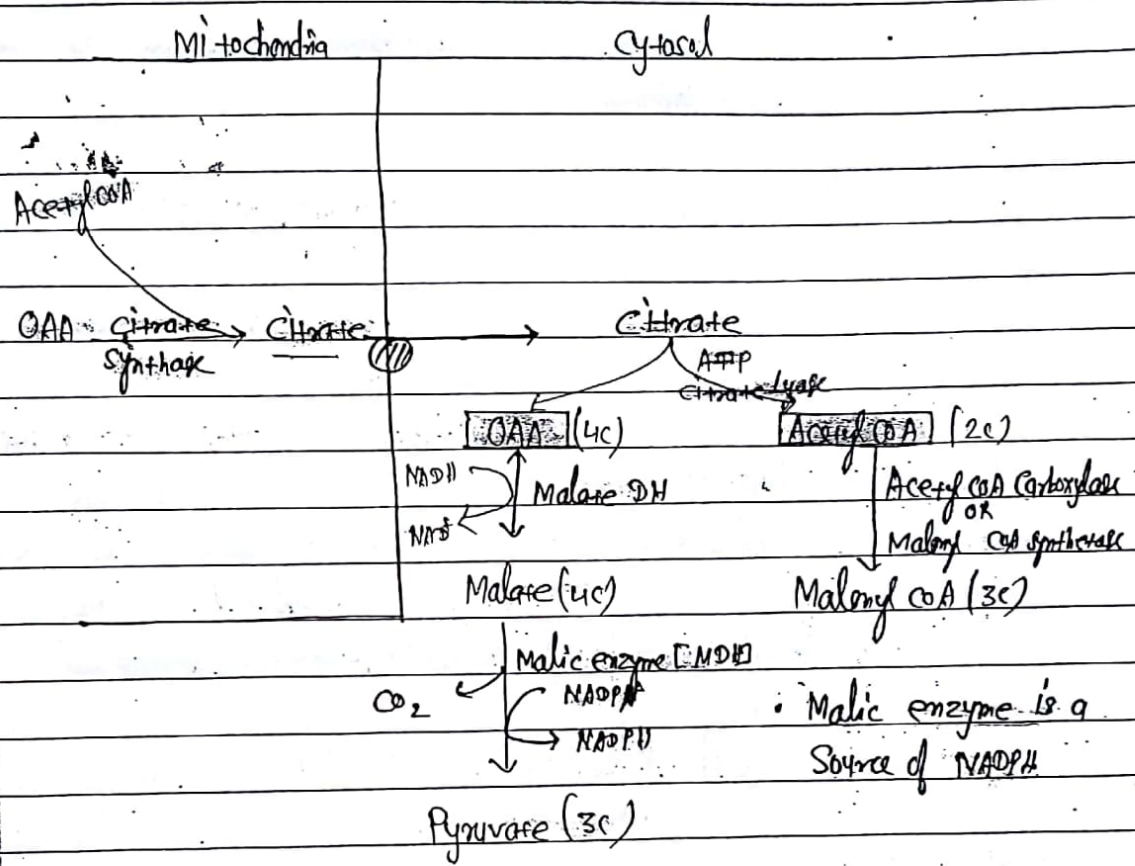 Mitochondria
Cytosol
Acetyl CoA
OAA
Citrate
Synthase
Citrate
Citrate
ATP
Citrate lyase
OAA (4c)
Acetyl CoA (2c)
NADH
Malate DH
NAD+
Acetyl CoA Carboxylase
OR
Malonyl CoA Synthetase
Malate (4c)
Malonyl CoA (3c)
Malic enzyme [MDH]
CO2
NADPH
• Malic enzyme is a
Source of NADPH
Pyruvate (3c)